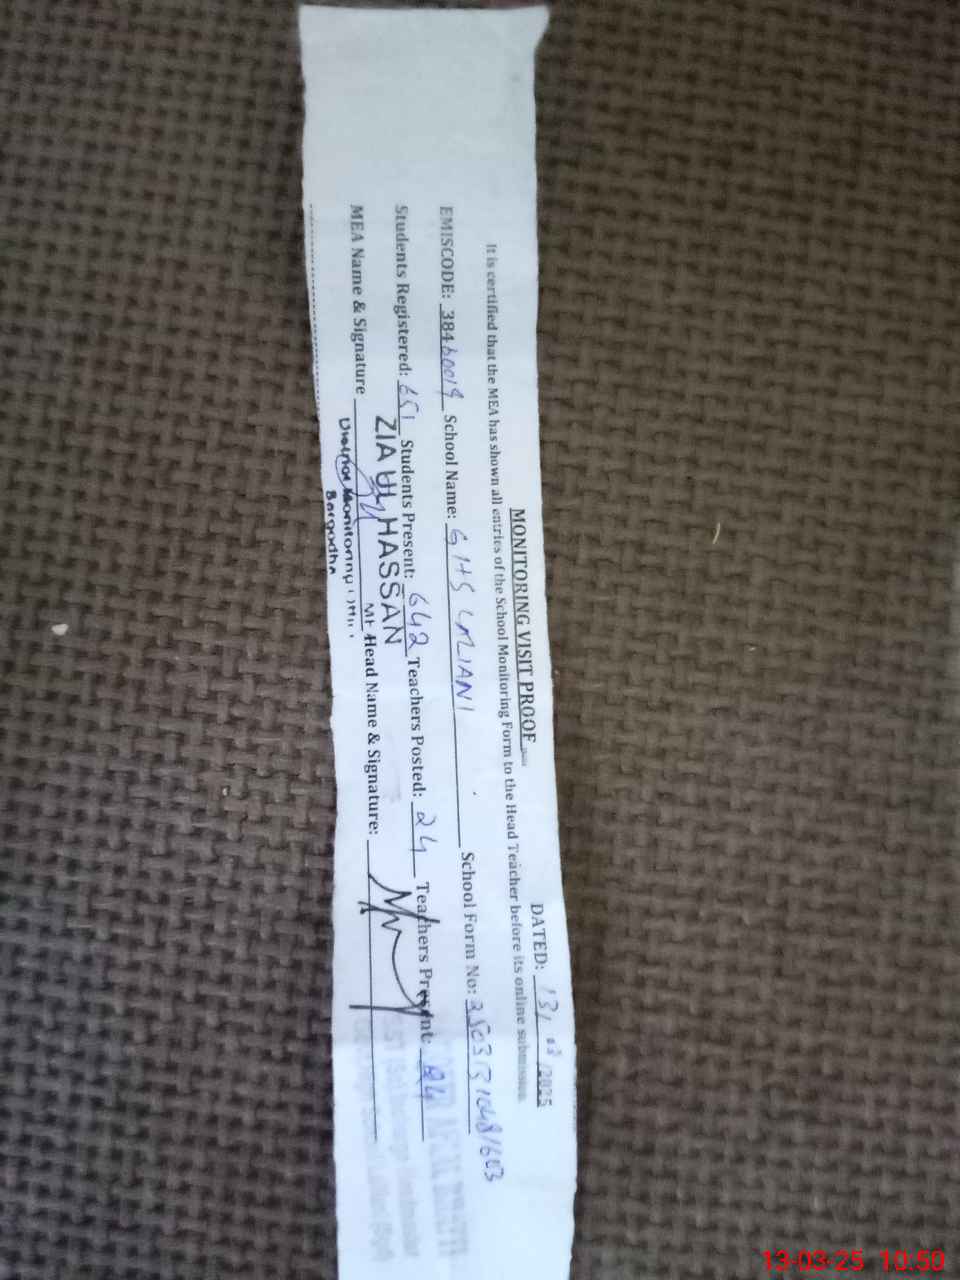 MONITORING VISIT PROOF
DATED: 13/ 03 /2025
It is certified that the MEA has shown all entries of the School Monitoring Form to the Head Teacher before its online submission.
EMISCODE: 38460019 School Name: GHS LALIANI School Form No:
Students Registered: 651 Students Present: 642 Teachers Posted: 24 Teachers Present: 24
ZIA UL HASSAN
MEA Name & Signature Head Name & Signature:
District Monitoring
Sargodha
13-03-25 10:50